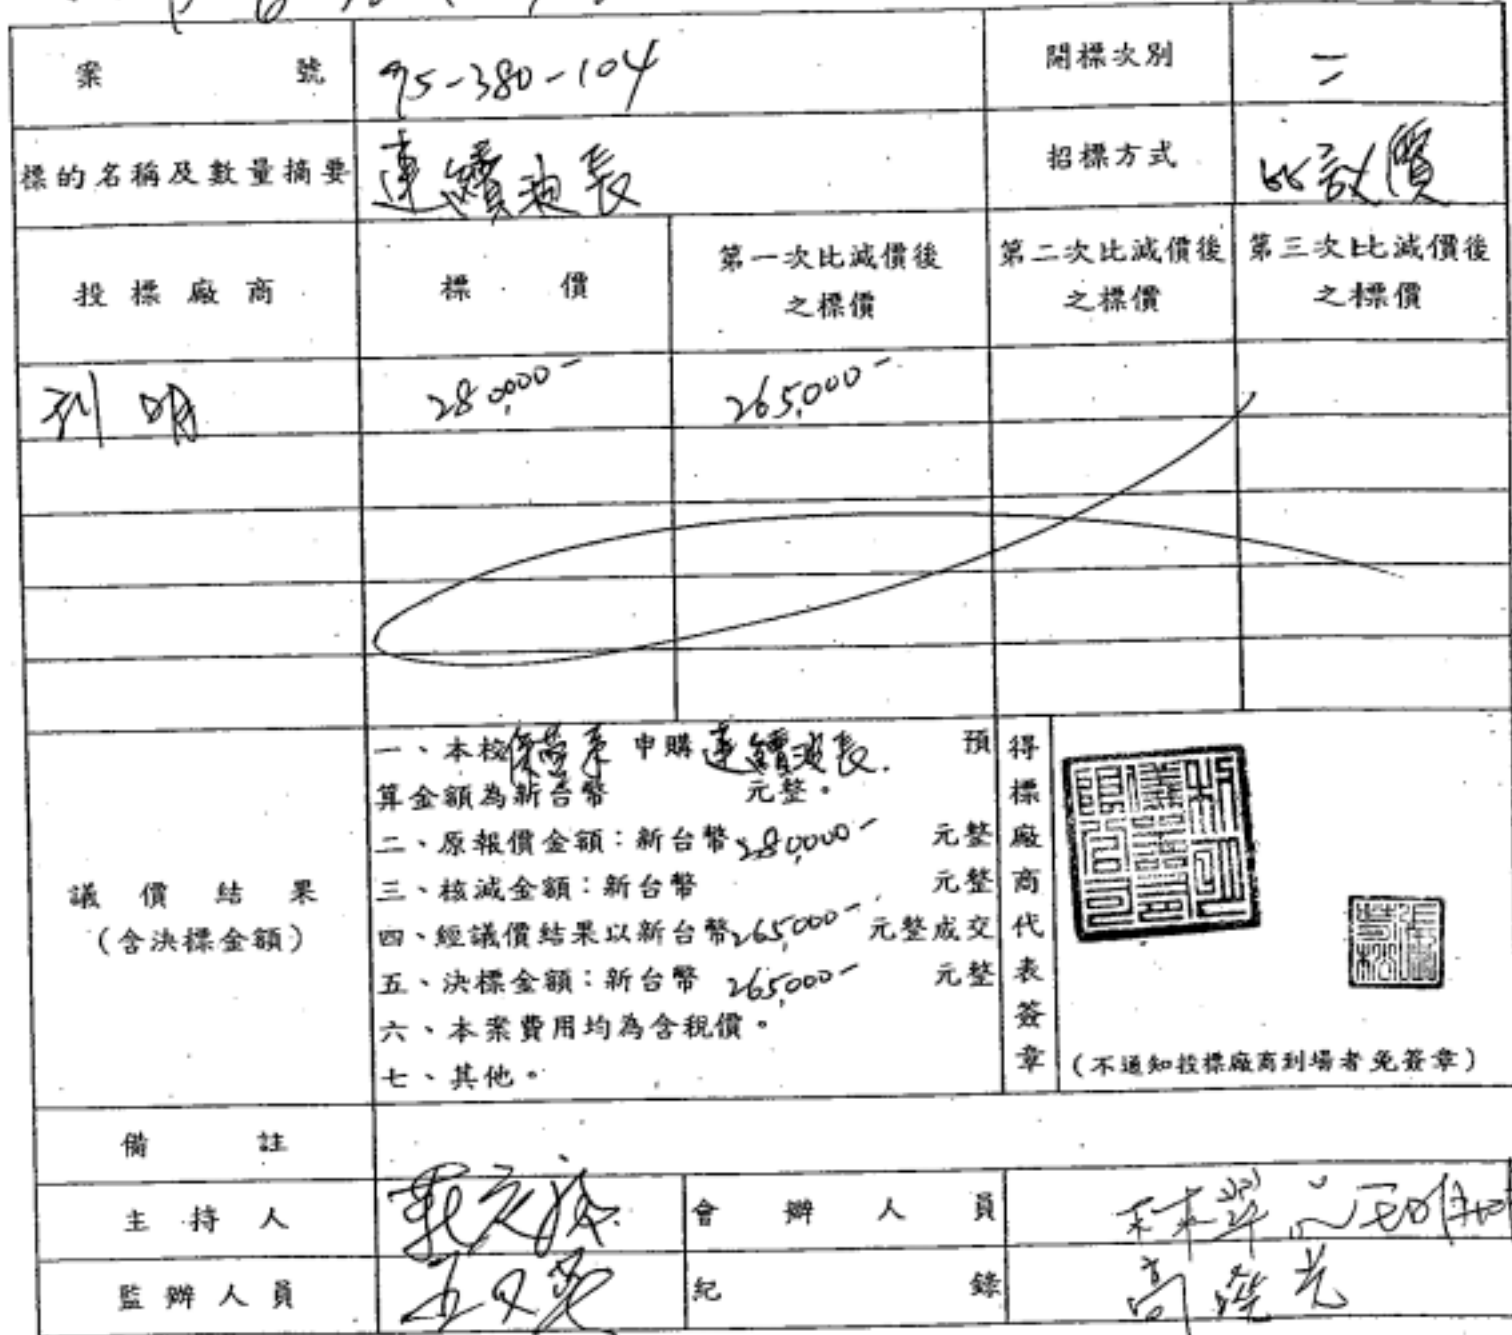 案號 95-380-104 開標次別 二
標的名稱及數量摘要 連續波長 招標方式 比議價
投標廠商 標價 第一次比減價後之標價 第二次比減價後之標價 第三次比減價後之標價
科明 280,000- 265,000-
議價結果
(含決標金額)
一、本校 申購連續波長. 預
算金額為新台幣 元整。
二、原報價金額:新台幣280,000- 元整
三、核減金額:新台幣 元整
四、經議價結果以新台幣265,000- 元整成交
五、決標金額:新台幣 265,000- 元整
六、本案費用均為含稅價。
七、其他。
得標廠商代表簽章
(不通知投標廠商到場者免簽章)
備註
主持人 會辦人員
監辦人員 紀錄